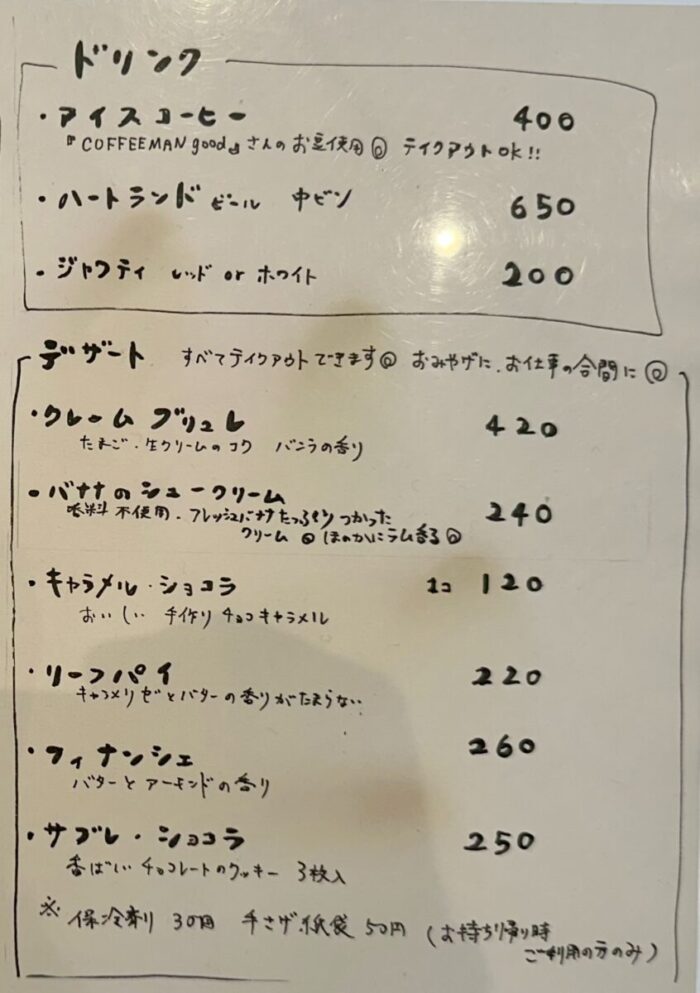 ドリンク
・アイスコーヒー 400
『COFFEEMAN good』さんのお豆使用◎ テイクアウトOK!!
・ハートランドビール 中ビン 650
・ジャワティ レッド or ホワイト 200
デザート すべてテイクアウトできます◎ おみやげに、お仕事の合間に◎
・クレームブリュレ 420
たまご・生クリームのコク バニラの香り
・バナナのシュークリーム 240
香料不使用・フレッシュバナナたっぷりつかった
クリーム◎ ほのかにラム香る◎
・キャラメル・ショコラ 1コ 120
おいしい 手作りチョコキャラメル
・リーフパイ 220
キャラメリゼとバターの香りがたまらない
・フィナンシェ 260
バターとアーモンドの香り
・サブレ・ショコラ 250
香ばしいチョコレートのクッキー 3枚入
※保冷剤 30円 手さげ紙袋 50円 (お持ち帰り時
ご利用の方のみ)